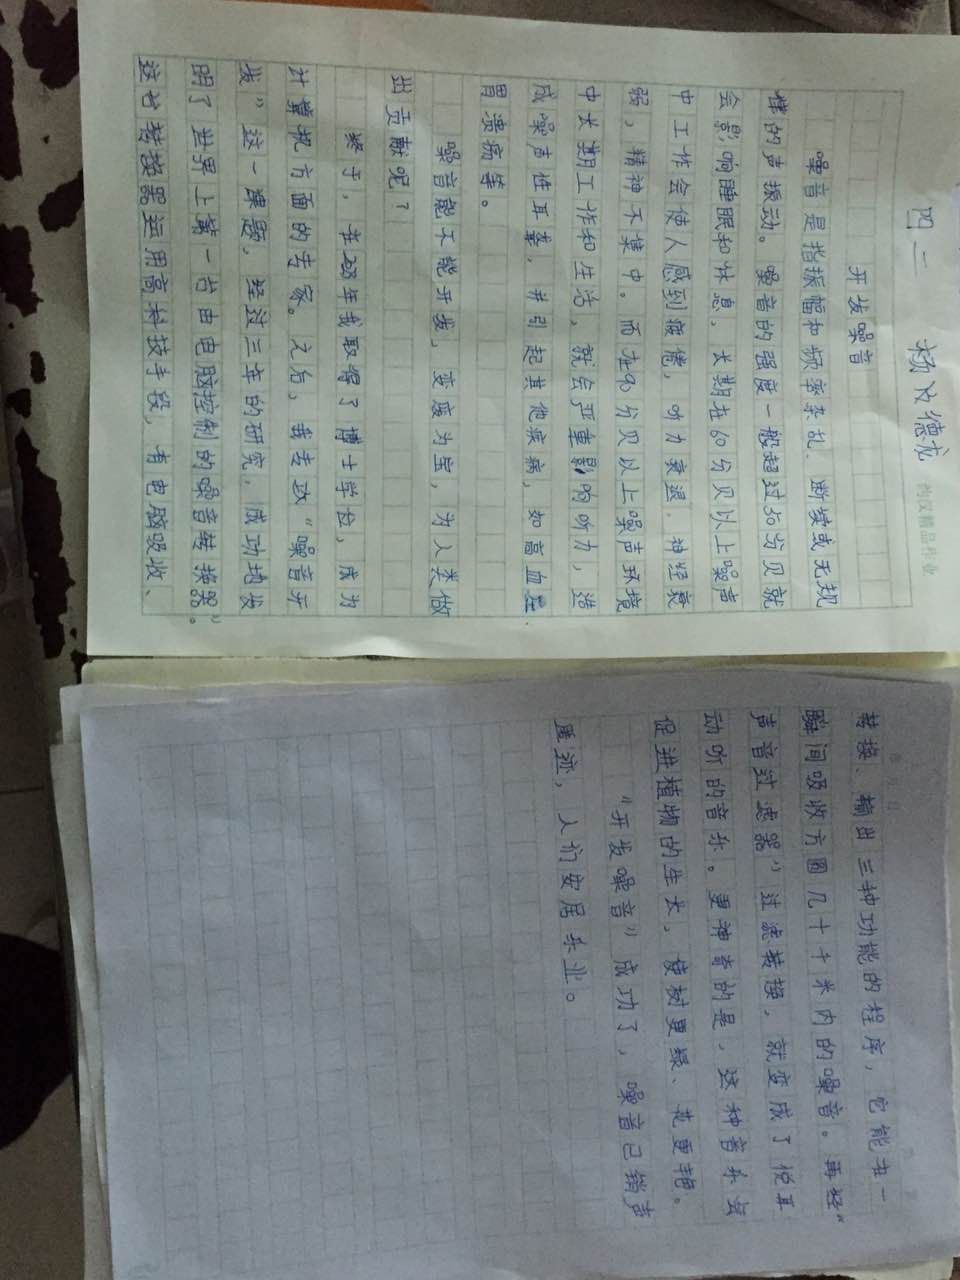 四二 杨汶德龙
开发噪音
噪音是指振幅和频率杂乱、断续或无规
律的声振动。噪音的强度一般超过50分贝就
会影响睡眠和休息。长期在60分贝以上噪声
中工作会使人感到疲倦，听力衰退，神经衰
弱，精神不集中。而在90分贝以上噪声环境
中长期工作和生活，就会严重影响听力，造
成噪声性耳聋，并引起其他疾病，如高血压
胃溃疡等。
噪音能不能开发，变废为宝，为人类做
出贡献呢？
终于，在 年我取得了博士学位，成为
计算机方面的专家。之后，我去攻“噪音开
发”这一课题，经过三年的研究，成功地发
明了世界上第一台由电脑控制的“噪音转换器”。
这台转换器运用高科技手段，有电脑吸收、
转换、输出三种功能的程序，它能在一
瞬间吸收方圆几十千米内的噪音。再经“
声音过滤器”过滤转换，就变成了悦耳
动听的音乐。更神奇的是，这种音乐会
促进植物的生长，使树更绿、花更艳。
“开发噪音”成功了，噪音已销声
匿迹，人们安居乐业。